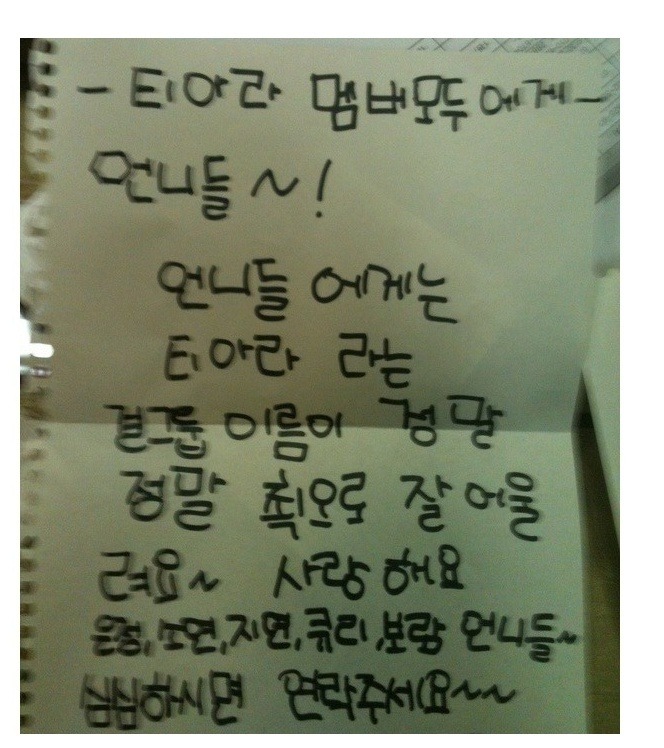 - 티아라 멤버모두에게 -
언니들~!
언니들에게는
티아라 라는
걸그룹 이름이 정말
정말 최으로 잘 어울
려요~ 사랑해요
은정,소연,지연,큐리,보람 언니들~
심심하시면 연락주세요~~